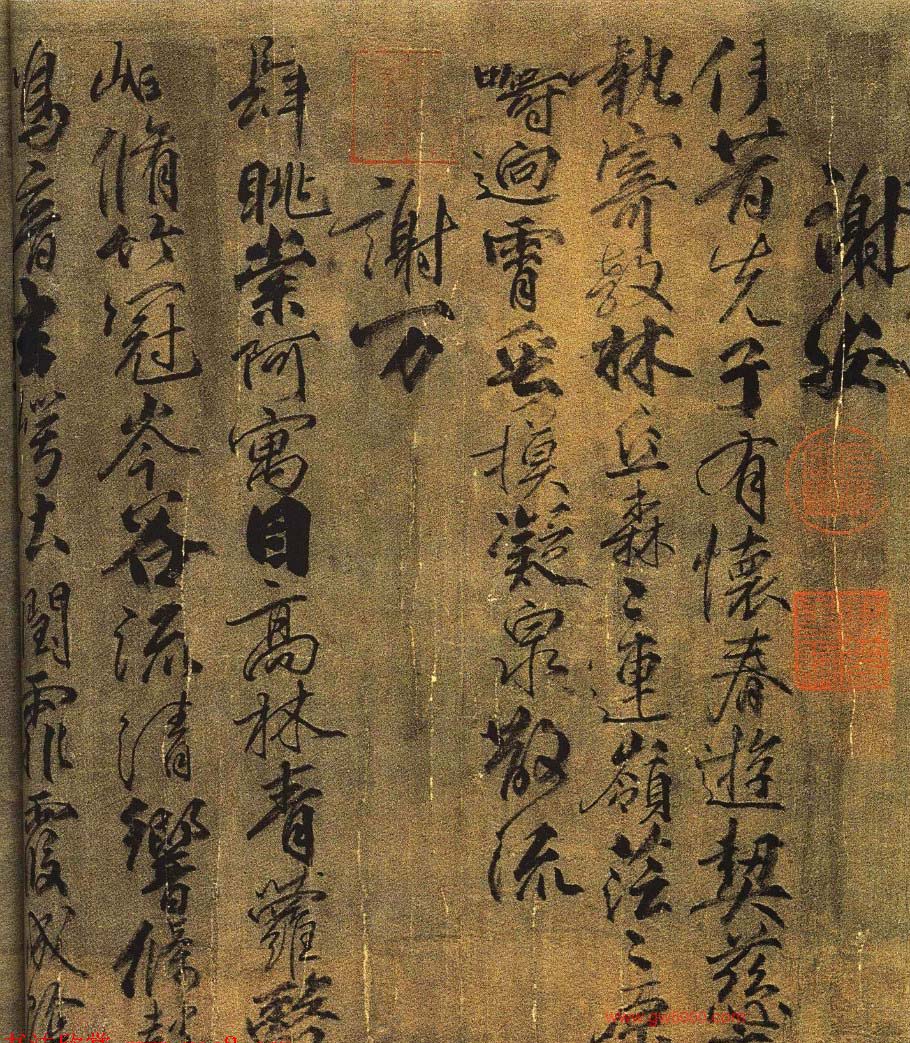 謝安
伊昔先子有懷春遊契茲
執寄敖林丘森ミ連嶺茫ミ原
疇逈霄垂摸凝泉散流
謝万
肆眺崇阿寓目高林青蘿翳
岫脩竹冠岑谷流清響條鼓
鳥音玄崿吐潤霏霞成陰